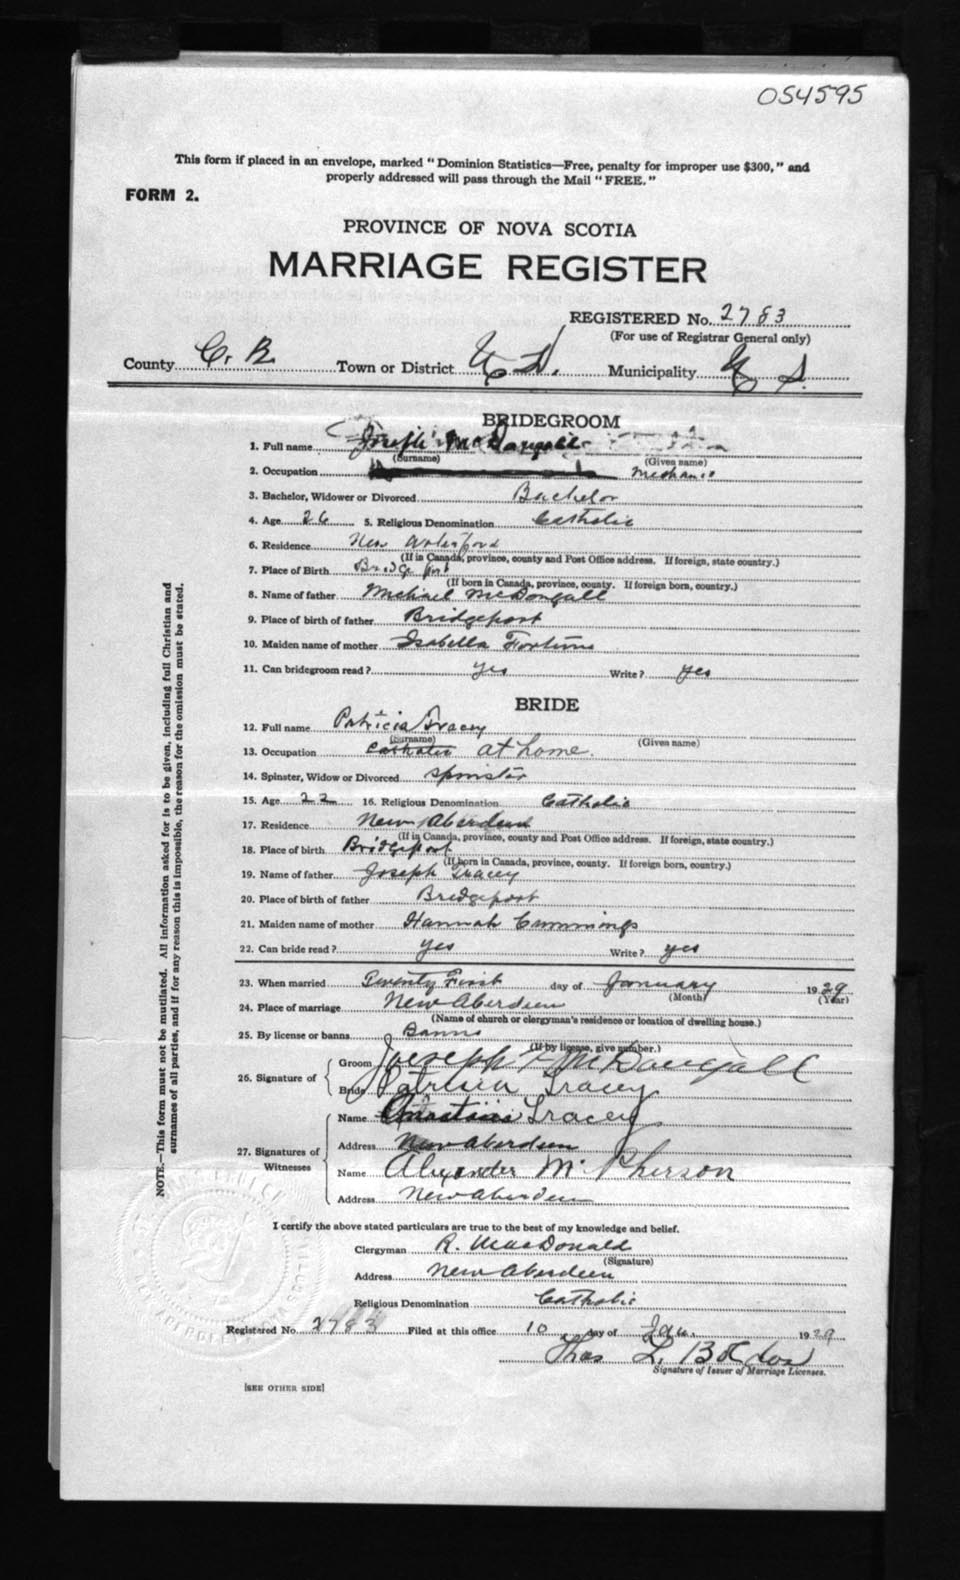 054595
This form if placed in an envelope, marked "Dominion Statistics—Free, penalty for improper use $300," and
properly addressed will pass through the Mail "FREE."
FORM 2.
PROVINCE OF NOVA SCOTIA
MARRIAGE REGISTER
REGISTERED No. 2783
(For use of Registrar General only)
County C. B. Town or District Municipality
BRIDEGROOM
1. Full name Joseph McDougall
(Surname) (Given name)
2. Occupation Mechanic
3. Bachelor, Widower or Divorced Bachelor
4. Age 26 5. Religious Denomination Catholic
6. Residence New Waterford
(If in Canada, province, county and Post Office address. If foreign, state country.)
7. Place of Birth Bridgeport
(If born in Canada, province, county. If foreign born, country.)
8. Name of father Michael McDougall
9. Place of birth of father Bridgeport
10. Maiden name of mother Isabella
11. Can bridegroom read? yes Write? yes
BRIDE
12. Full name Patricia Tracey
(Surname) (Given name)
13. Occupation Catholic at home.
14. Spinster, Widow or Divorced Spinster
15. Age 22 16. Religious Denomination Catholic
17. Residence New Aberdeen
(If in Canada, province, county and Post Office address. If foreign, state country.)
18. Place of birth Bridgeport
(If born in Canada, province, county. If foreign born, country.)
19. Name of father Joseph Tracey
20. Place of birth of father Bridgeport
21. Maiden name of mother Hannah Cummings
22. Can bride read? yes Write? yes
23. When married Twenty First day of January 1929
(Month) (Year)
24. Place of marriage New Aberdeen
(Name of church or clergyman's residence or location of dwelling house.)
25. By license or banns Banns
(If by license, give number.)
26. Signature of Groom Joseph McDougall
Bride Patricia Tracey
27. Signatures of Witnesses
Name Tracey
Address New Aberdeen
Name Alexander McPherson
Address New Aberdeen
I certify the above stated particulars are true to the best of my knowledge and belief.
Clergyman R. MacDonald
(Signature)
Address New Aberdeen
Religious Denomination Catholic
Registered No. 2783 Filed at this office 10 day of Jan. 1929
Thos
Signature of Issuer of Marriage Licenses.
[SEE OTHER SIDE]
NOTE.—This form must not be mutilated. All information asked for is to be given, including full Christian and
surnames of all parties, and if for any reason this is impossible, the reason for the omission must be stated.